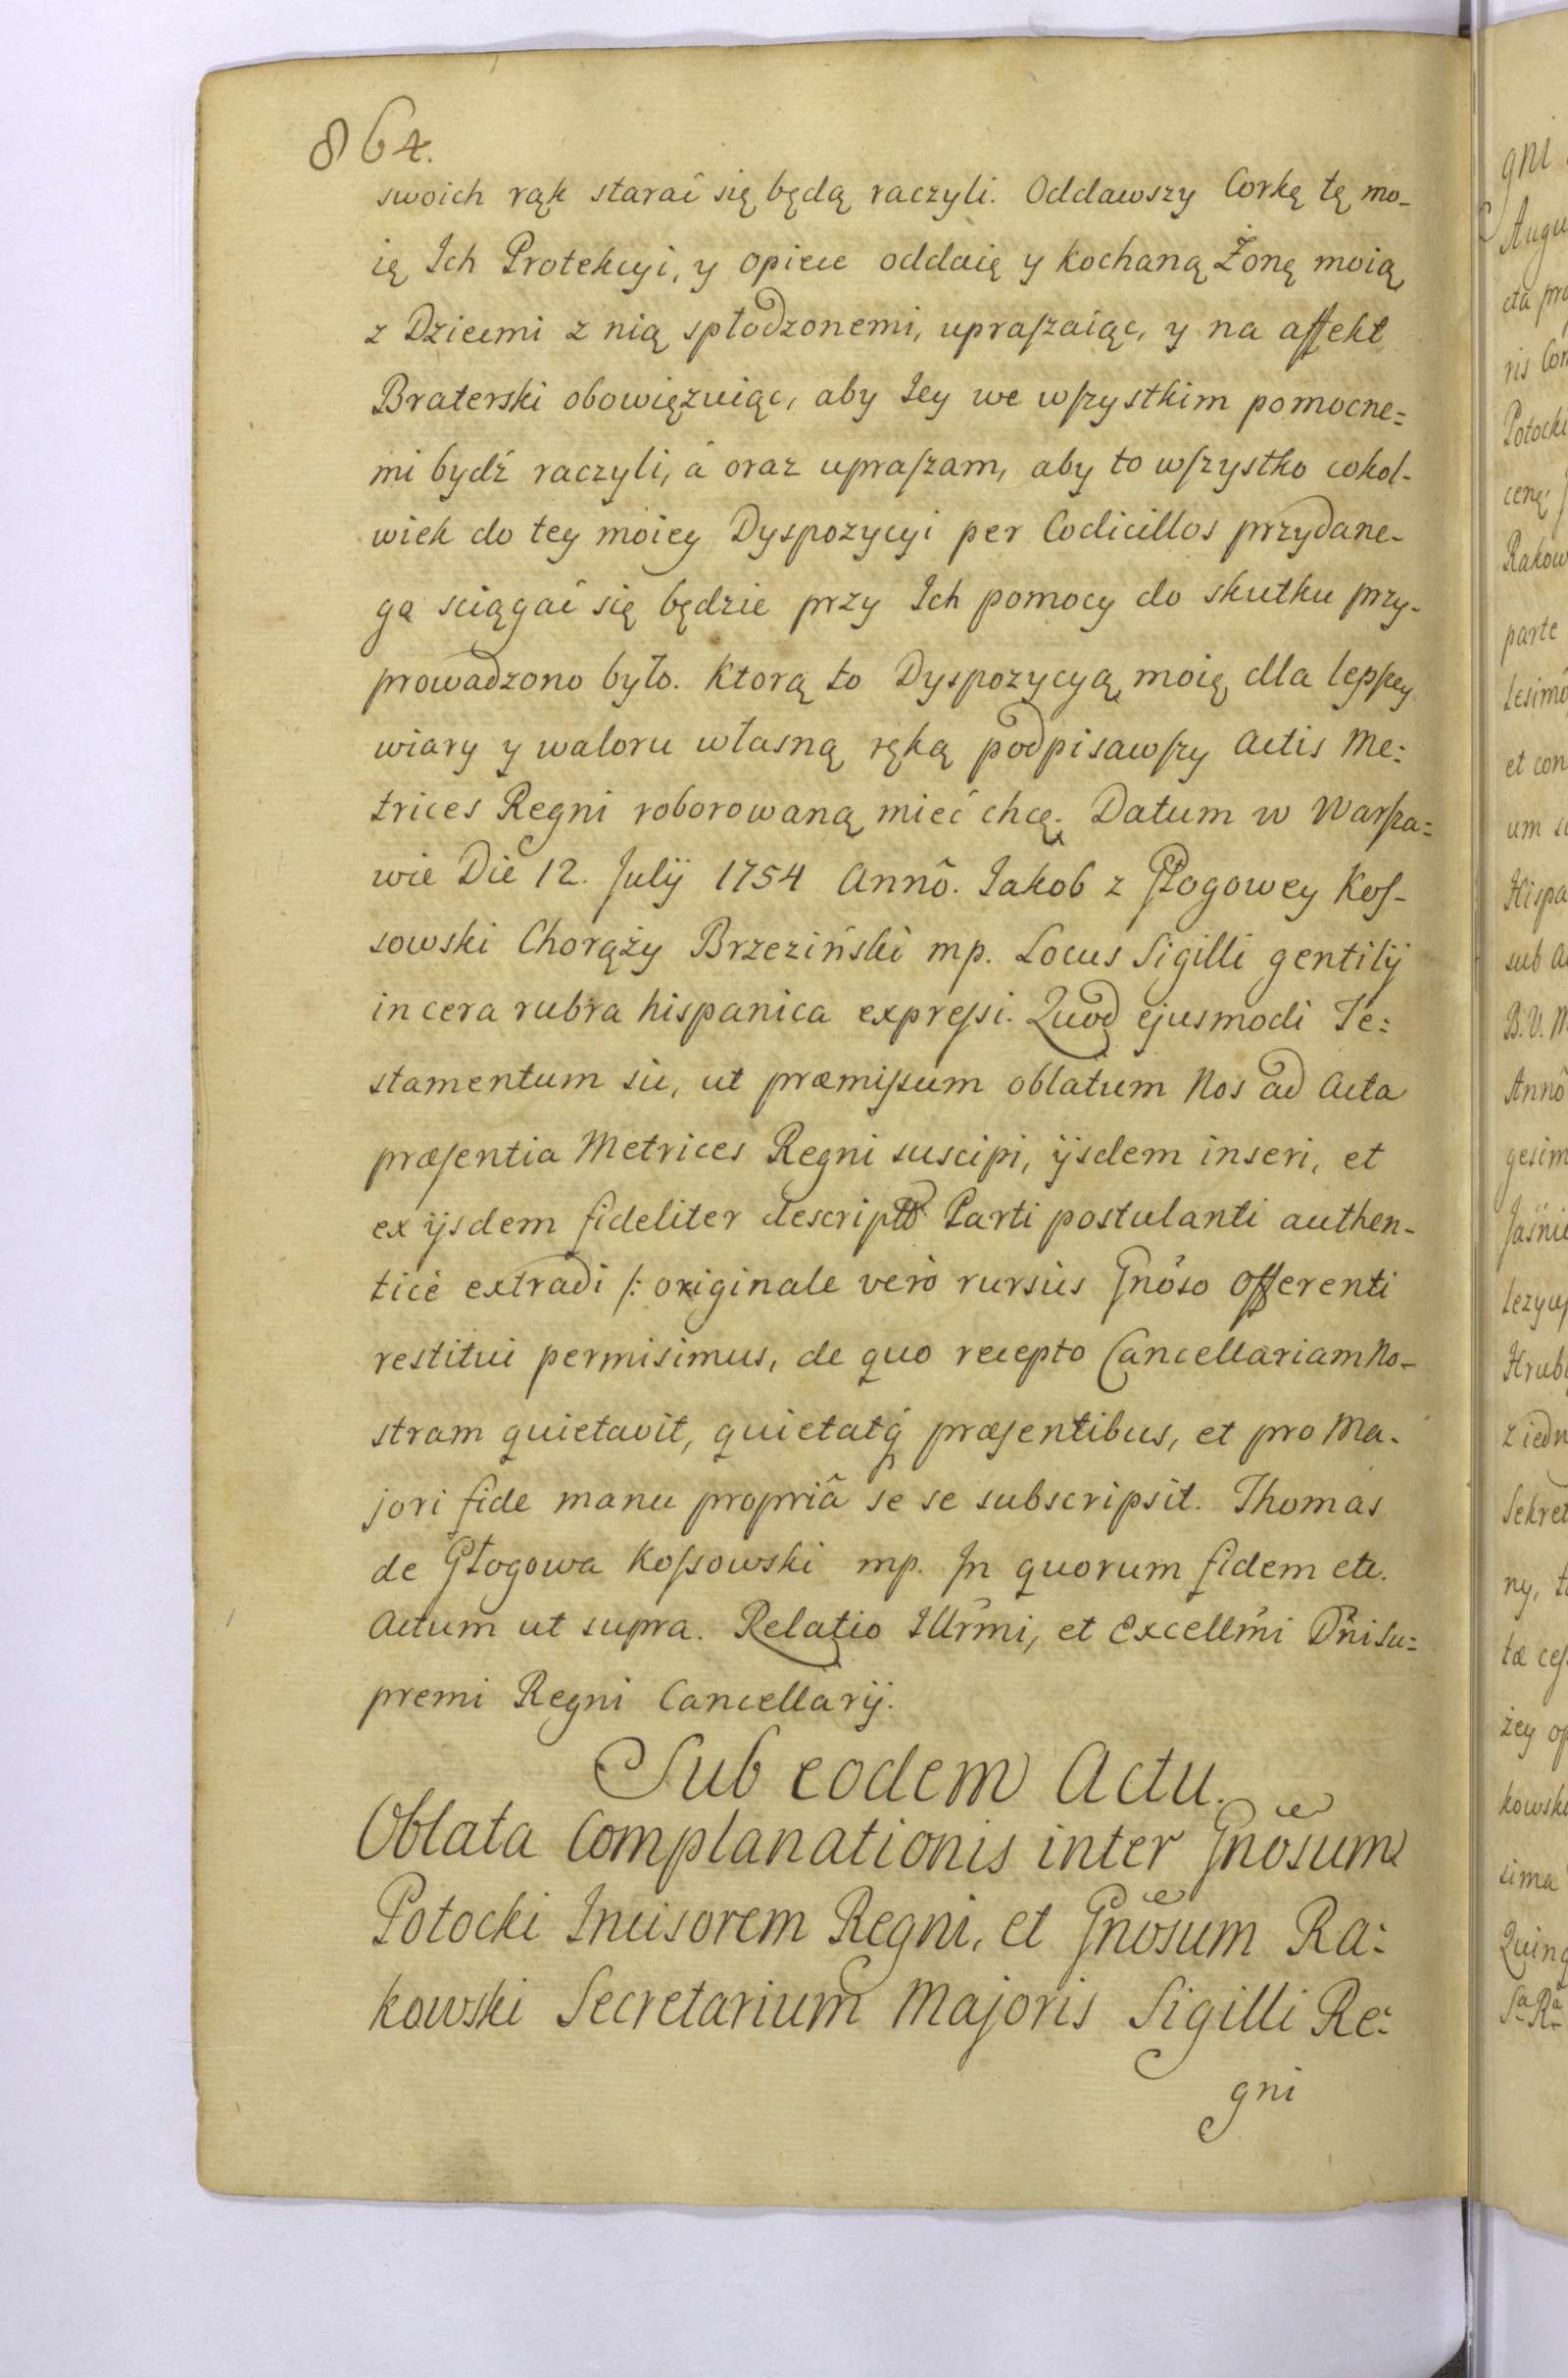 864.
swoich rąk starać się będą raczyli. Oddawszy Corkę tę mo-
ię Ich Protekcyi, y opiece oddaię y kochaną Żonę moią
z Dziećmi z nią spłodzonemi, upraſzaiąc, y na affekt
Braterski obowięzuiąc, aby Iey we wſzystkim pomocne=
mi bydź raczyli, á oraz upraſzam, aby to wſzystko cokol-
wiek do tey moiey Dyspozycyi per Codicillos przydane-
go sciągać się będzie przy Ich pomocy do skutku przy-
prowadzono było. Ktorą to Dyspozycyą moię dla lepſzey
wiary y waloru własną ręką podpisawſzy Actis Me=
trices Regni roborowaną mieć chcę. Datum w Warſza=
wie Die 12. Julij 1754 Annô. Iakob z Głogowey Koſ-
sowski Chorąży Brzeziński mp. Locus Sigilli gentilij
in cera rubra hispanica expreſsi. Quod ejusmodi Te=
stamentum sic, ut præmiſsum oblatum Nos ad Acta
præſentia Metrices Regni suscipi, ijsdem inseri, et
ex ijsdem fideliter descriptũ Parti postulanti authen-
ticè extradi /: originale verò rursùs Gnõso Offerenti
restitui permisimus, de quo recepto Cancellariam No-
stram quietavit, quietatq́ præſentibus, et pro Ma-
jori fide manu propriâ se se subscripsit. Thomas
de Głogowa Koſsowski mp. In quorum fidem etc.
Actum ut supra. Relatio Illr̃mi, et Excellm̃i Dñi Su=
premi Regni Cancellarij.
Sub eodem Actu.
Oblata Complanationis inter Gnõsum
Potocki Incisorem Regni, et Gnõsum Ra=
kowski Secretarium Majoris Sigilli Re=
gni
gni
Potocki
parte
et con
um
sub
B. V. M
Annô